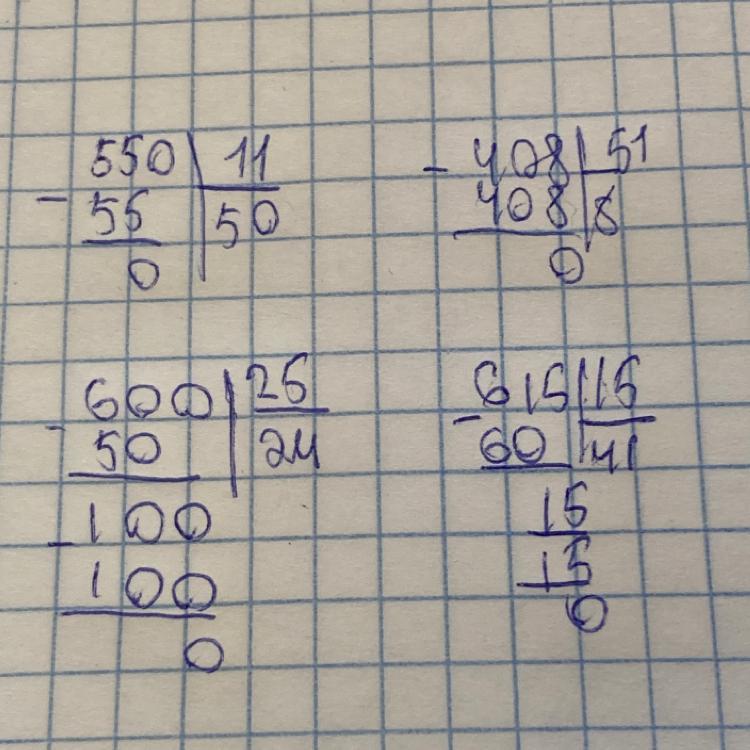 550 11
- 55 50
0
- 408 51
408 8
0
600 25
- 50 24
- 100
100
0
- 615 15
60 41
15
15
0